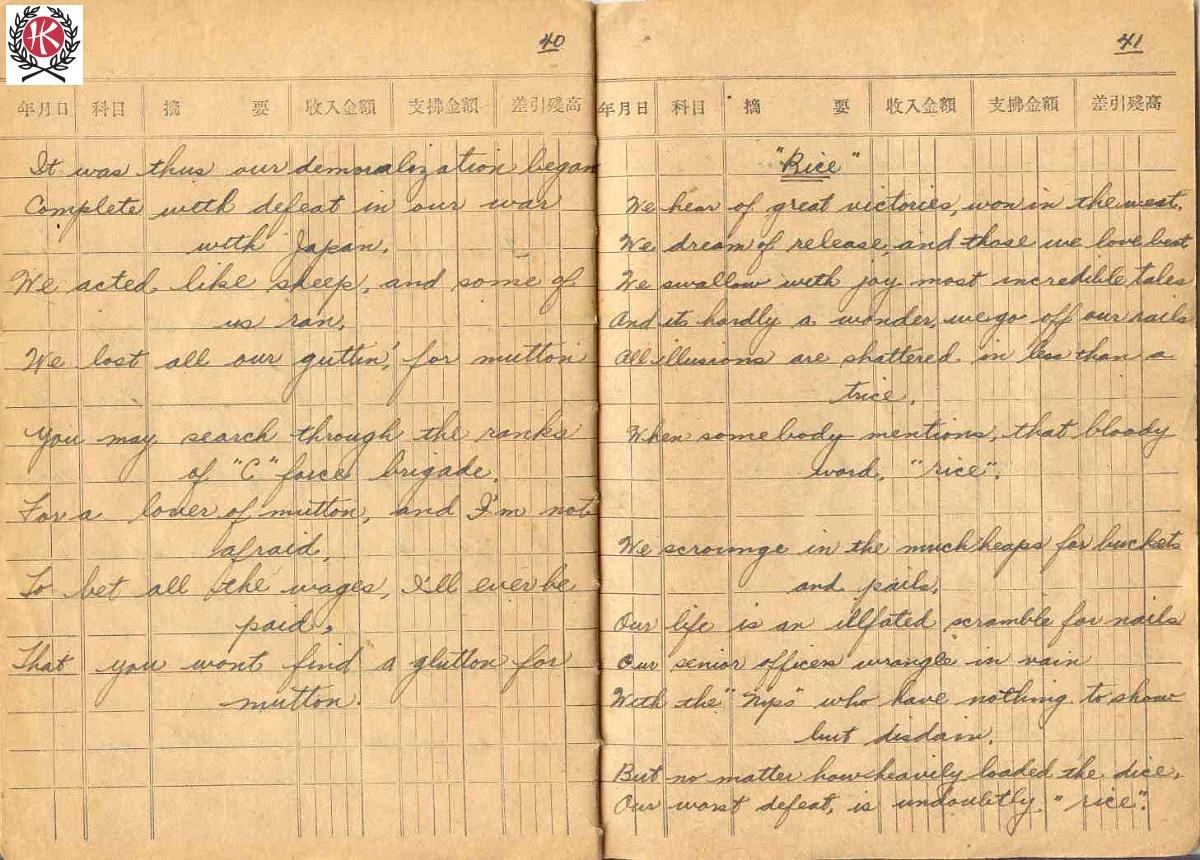 HK
40
年月日 科目 摘要 收入金額 支拂金額 差引殘高
It was thus our demoralization began
Complete with defeat in our war
with Japan,
We acted like sheep, and some of
us ran,
We lost all our guttin', for mutton
You may search through the ranks
of "C" force brigade,
For a lover of mutton, and I'm not
afraid,
To bet all the wages, I'll ever be
paid,
That you wont find a glutton for
mutton.
41
年月日 科目 摘要 收入金額 支拂金額 差引殘高
"Rice"
We hear of great victories, won in the west,
We dream of release, and those we love best
We swallow with joy most incredible tales
And its hardly a wonder, we go off our rails
All illusions are shattered in less than a
trice,
When somebody mentions, that bloody
word, "rice".
We scrounge in the muckheaps for buckets
and pails,
Our life is an illfated scramble for nails
Our senior officers wrangle in vain
With the "Nips" who have nothing to show
but disdain.
But no matter how heavily loaded the dice,
Our worst defeat, is undoubtly "rice".